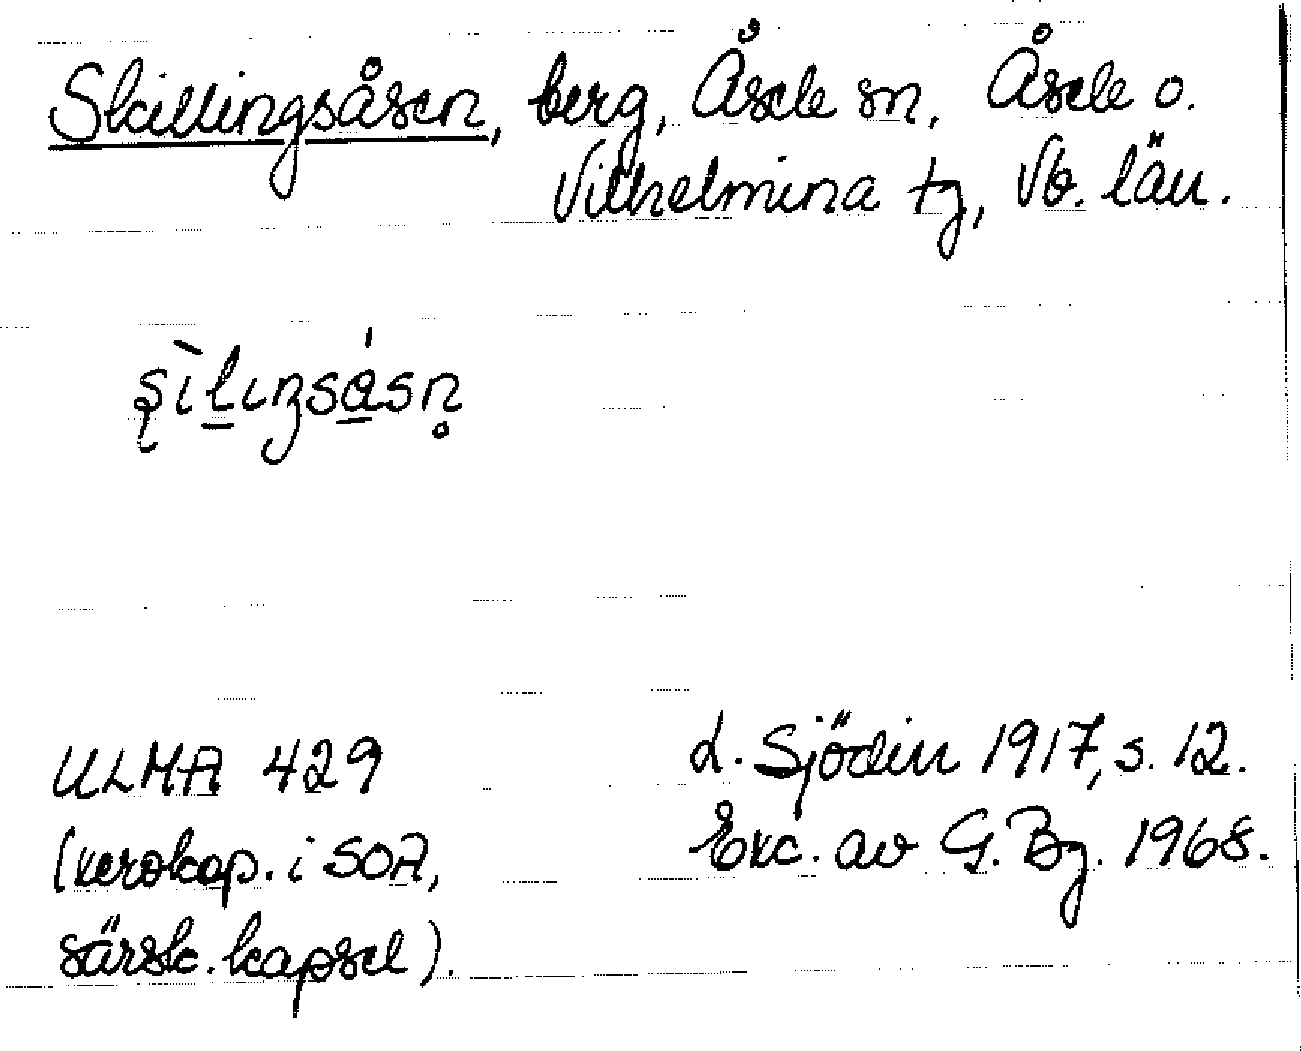 Skillingsåsen, berg, Åsele sn, Åsele o.
Vilhelmina tg, Vb. län.
ʂìlıŋsásn̥
ULMA 429
(xerokop. i SOA,
särsk. kapsel).
L. Sjödin 1917, s. 12.
Exc. av G. Bg. 1968.